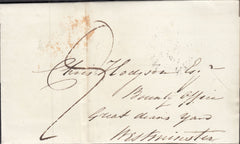 Hodgson Esqr
Bounty Office
Great deans Yard
Westminster